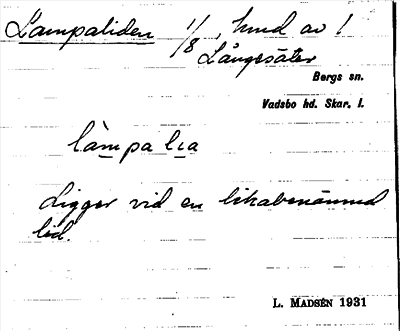 Lampaliden 1/8, hmd av 1
Långesäter
Bergs sn.
Vadsbo hd. Skar. l.
làmpa lia
Ligger vid en likabenämnd
lid.
L. MADSÉN 1931